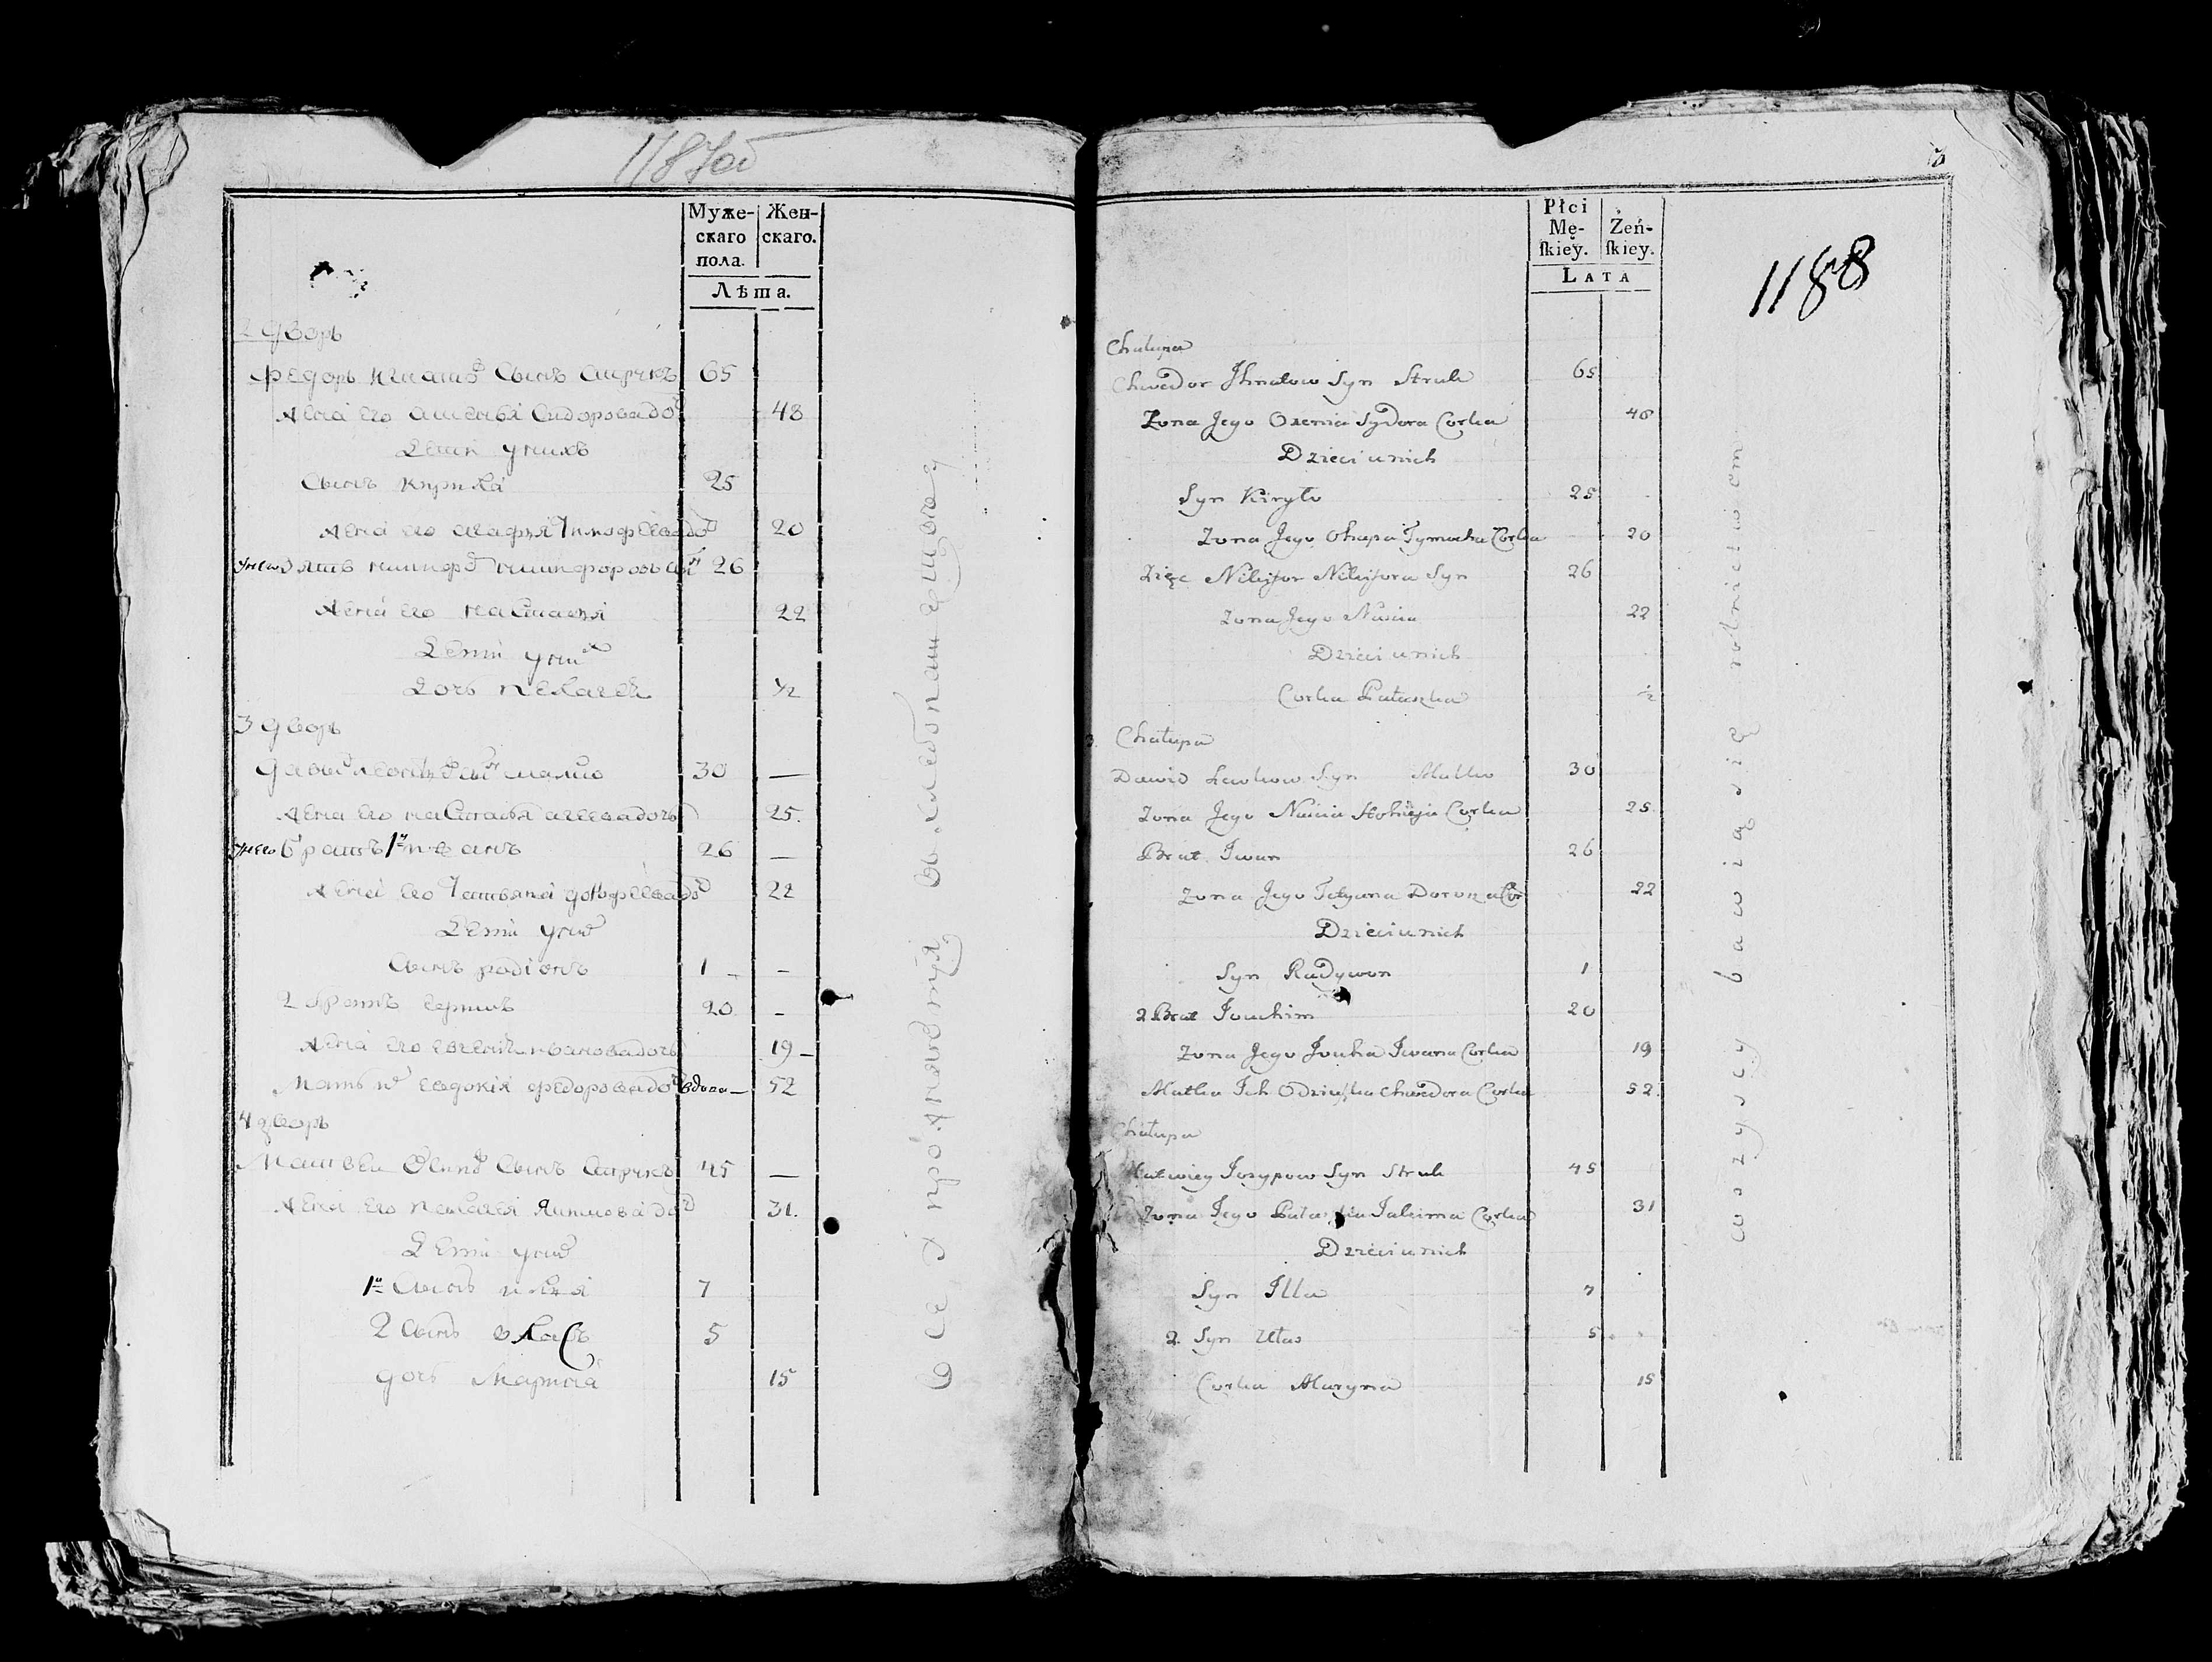 1187об
Муже-
скаго
пола.
Жен-
скаго.
Лѣта.
2 дворъ
Федоръ Игнатов Сынъ Струкъ 65
Жена его Сидорова до 48
Дети у нихъ
Сынъ Кирила 25
Жена его агафия Тимофеева до 20
у него зять Никифоръ Никифоровъ сын 26
Жена его настасья 22
Дети у них
Дочь пелагея 1/2
3 дворъ
давыд сын малко 30 —
Жена его настасья дочь 25.
у него братъ 1й иванъ 26 —
Жена его Татьяна до 22
Дети у них
Сынъ радіонъ 1 — —
2 братъ 20 —
Жена его иванова дочь 19 —
Мать их евдокія федорова до вдова — 52
4 дворъ
Матвеи Осипов Сынъ Струкъ 45 —
Жена его пелагея Якимова до 31.
Дети у них
1й Сынъ илья 7
2 Сынъ власъ 5
дочь Марина 15
все
Płci
Mę-
ſkiey.
Żeń-
ſkiey.
LATA
1188
Chałupa
Chwedor Ihnatow Syn Struk 65
Zona Jego Oxenia Sydora Corka 48
Dzieci u nich
Syn Kiryło 25
Zona Jego Ohapa Tymocha Corka 20
Zięc Nikifor Nikifora Syn 26
Zona Jego Nascia 22
Dzieci u nich
Corka Pałaszka 1/2
3. Chałupa
Dawid Lewkow Syn Malko 30
Zona Jego Nascia Corka 25
Brat Iwan 26
Zona Jego Tatyana Cor 22
Dzieci u nich
Syn Radywon 1
2 Brat Joachim 20
Zona Jego Iwana Corka 19
Matka Ich Chwedora Corka 52.
Chałupa
Matwiey Jozypow Syn Struk 45
Zona Jego Jakima Corka 31
Dzieci u nich
Syn Illa 7
2. Syn Ułas 5
Corka Maryna 15
wszyscy bawią się rolnictwem